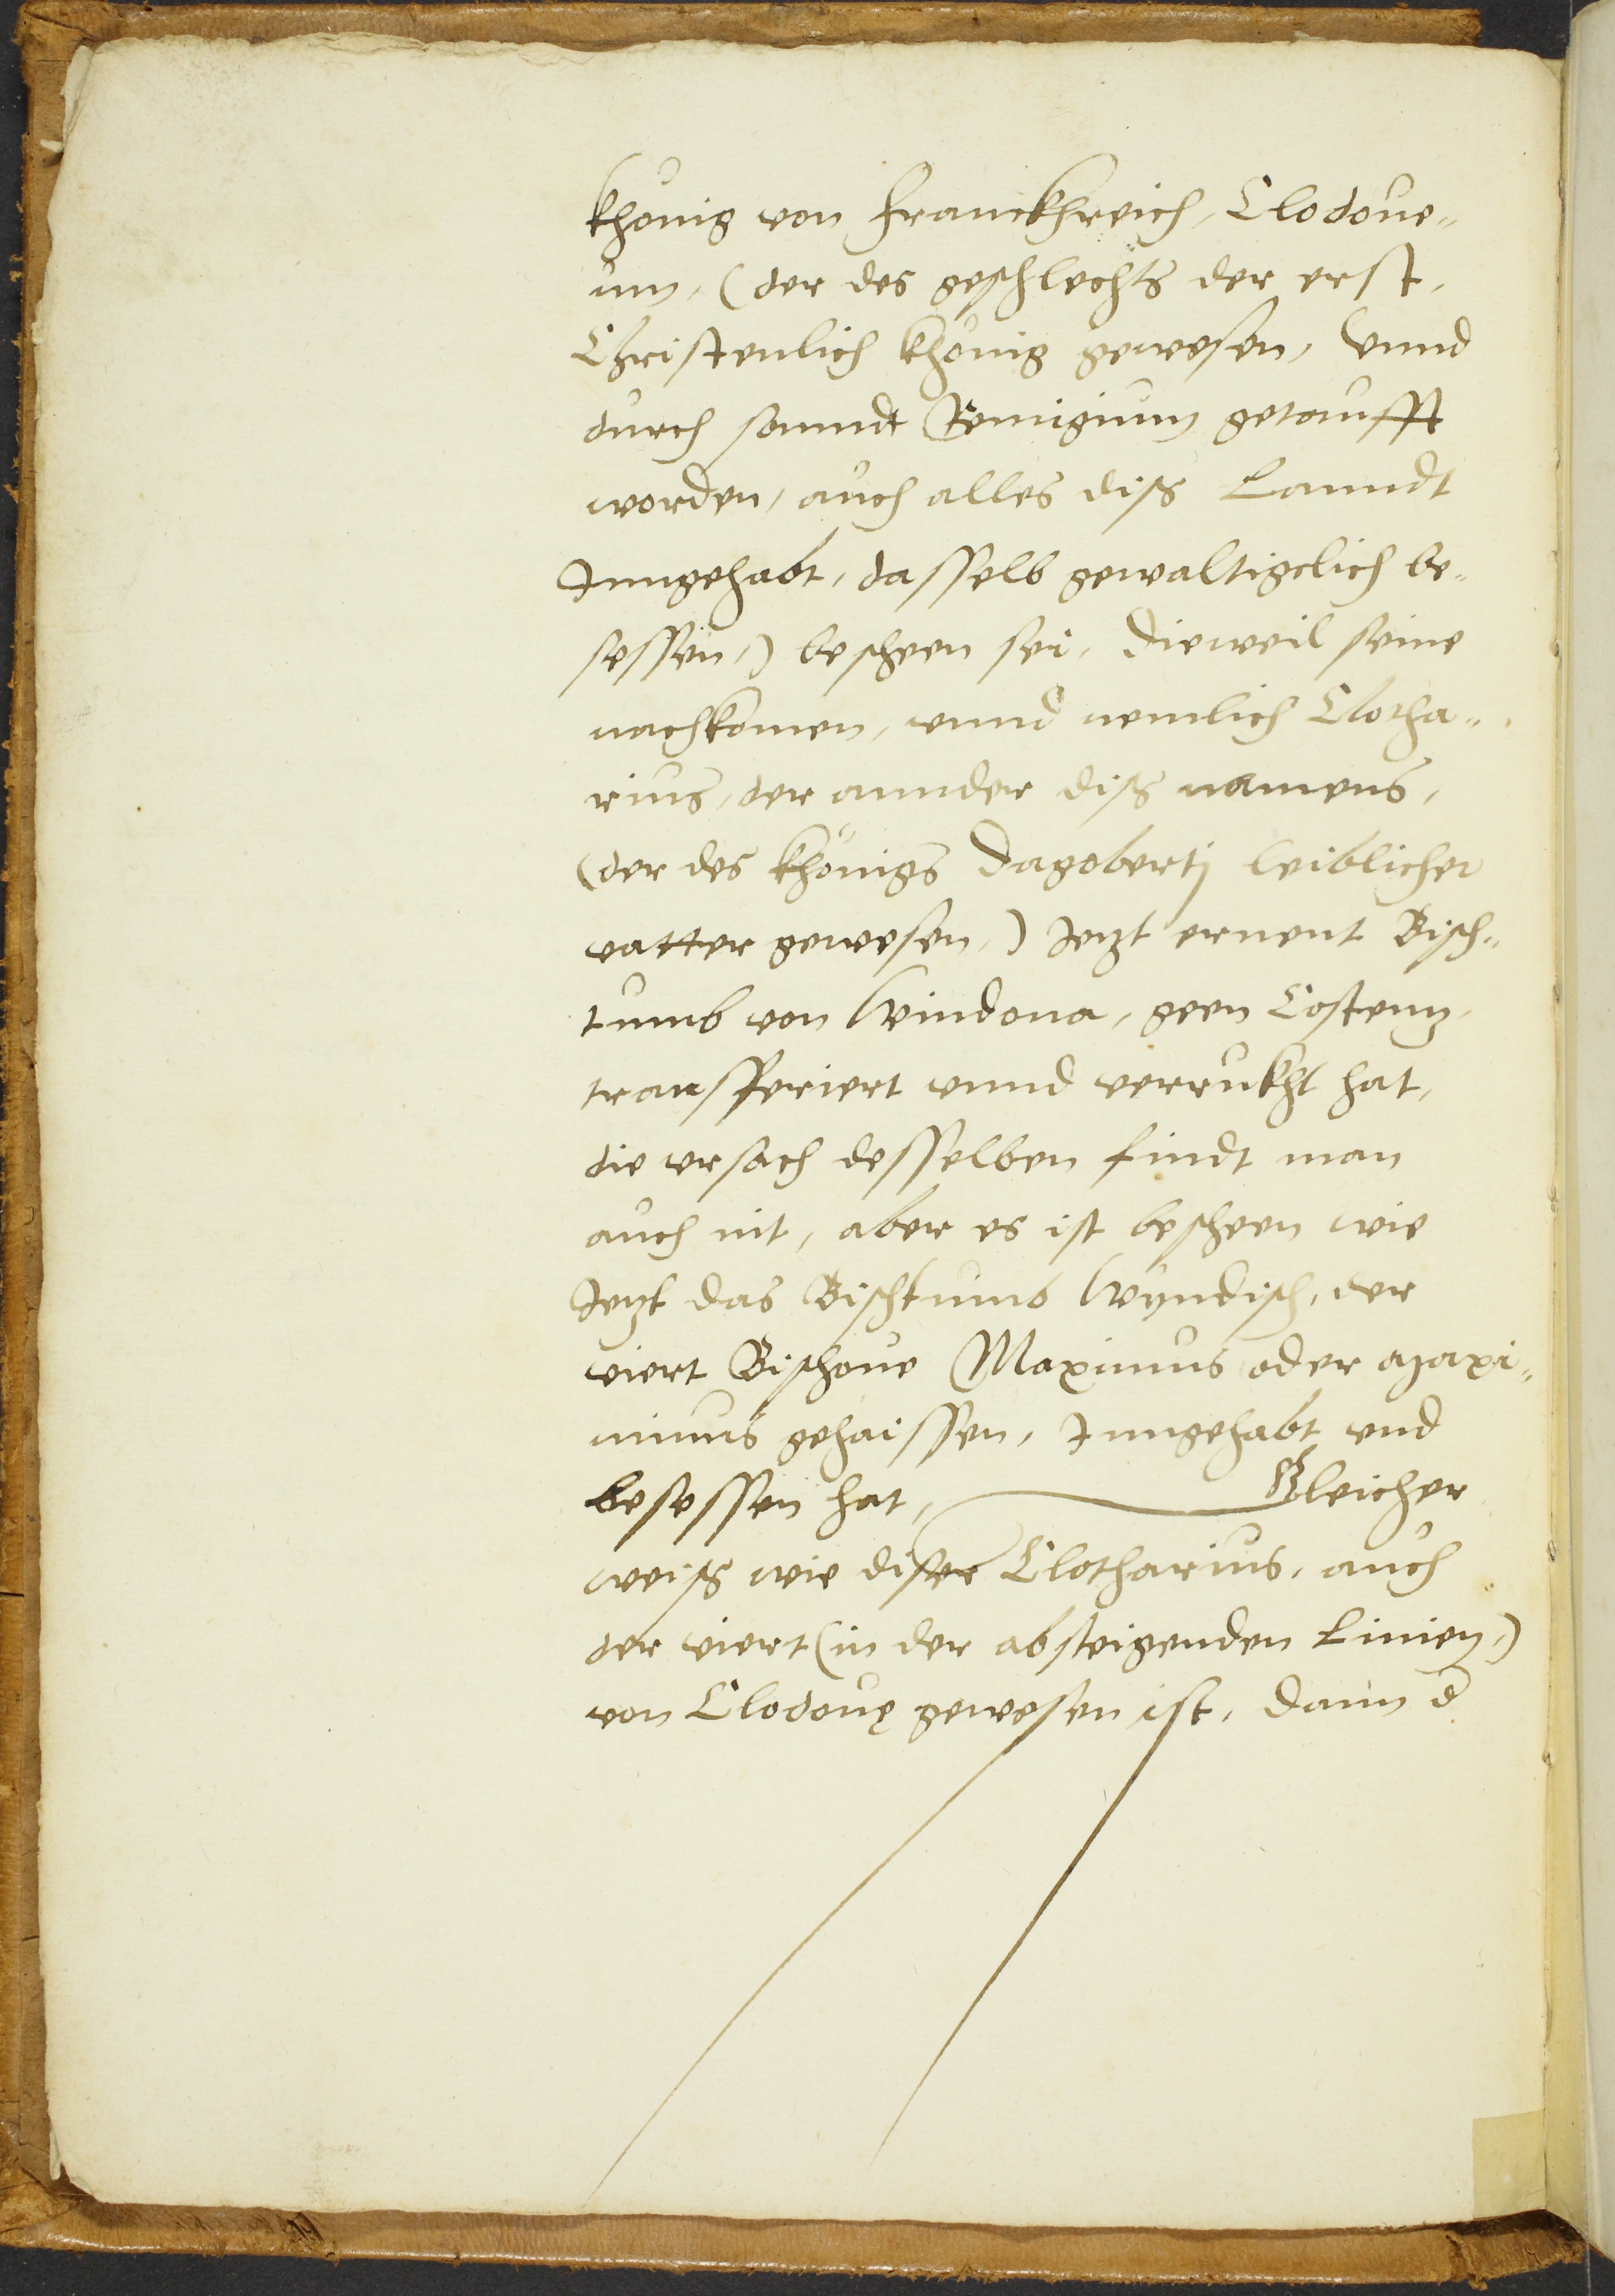 khönig von Franckhreich, Clodoue„
um, (der des geschlechts der erst,
Christenlich khönig gewesen, Vnnd
durch sanndt Remigium getaufft
worden, auch alles diß Lanndt
Inngehabt, dasselb gewaltigclich be„
sessen,) bescheen sei, Dieweil seine
nachkomen, vnnd nemlich Clotha„
rius, der annder diß namens,
(der des khönigs Dagobertj leiblicher
vatter gewesen,) Jezt ernent Bisch„
tumb von Vindona, geen Costenz,
transferiert vnnd verrukht hat,
die vrsach desselben findt man
auch nit, aber es ist bescheen wie
Jezt das Bischtumb Wyndisch, der
viert Bischoue Maximus oder Maxi„
minus gehaissen, Inngehabt vnd
besessen hat, Gleicher
weiß wie diser Clotharius, auch
der viert (in der absteigenden Linien,)
von Clodoue gewesen ist, Dann d